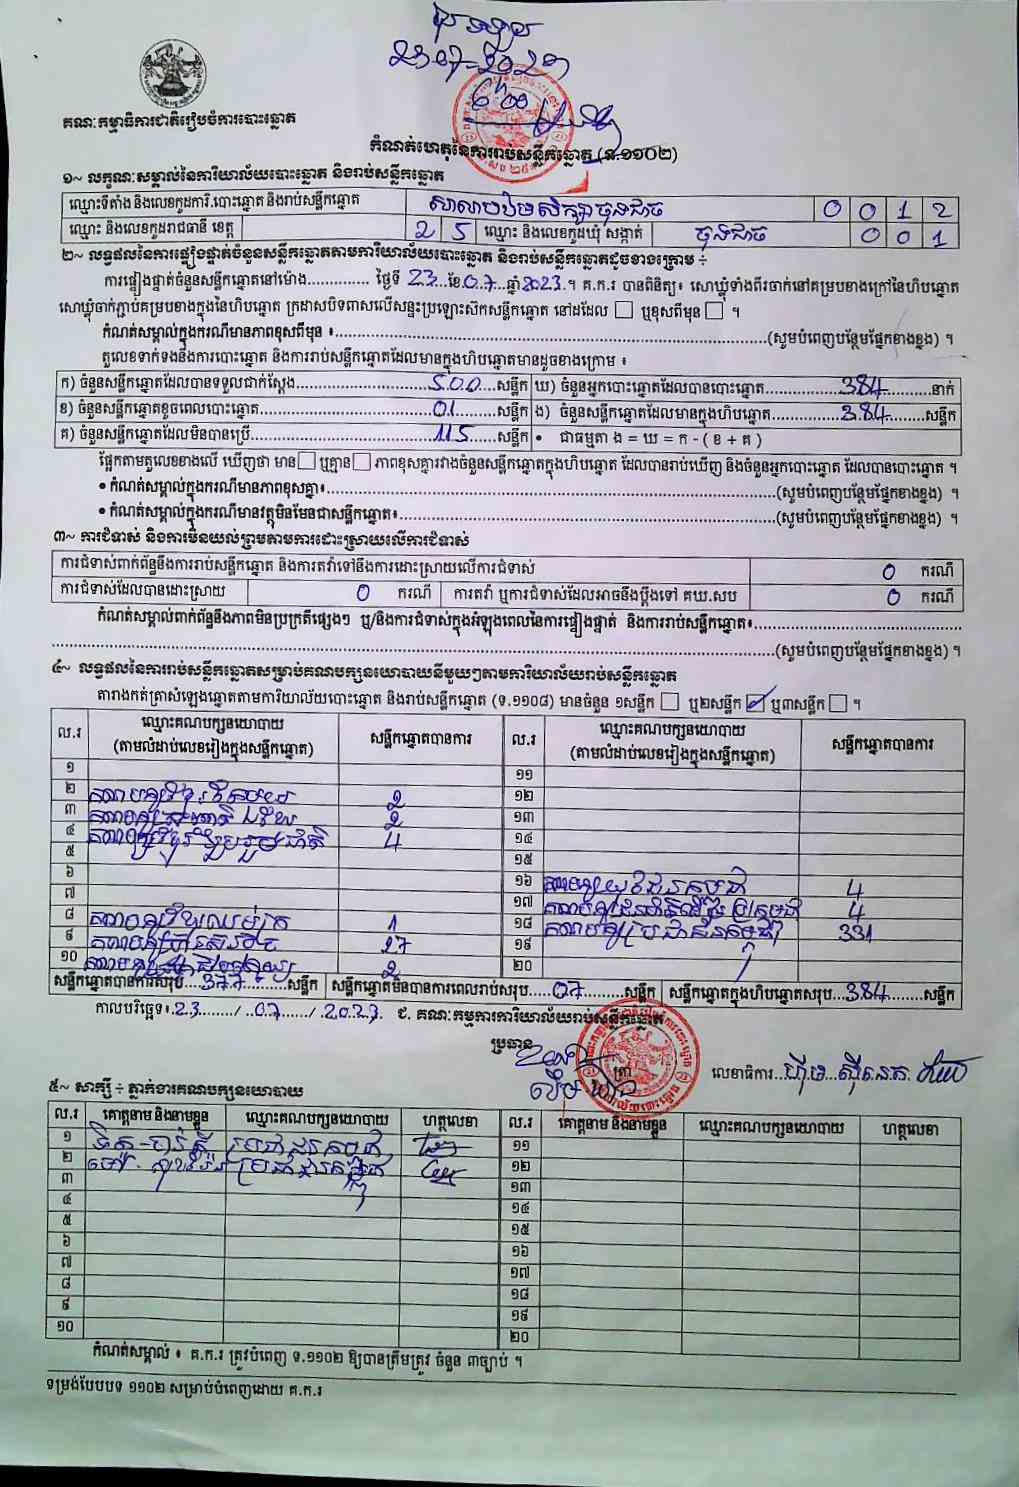 ២៣-០៧-២០២៣
គណៈកម្មាធិការជាតិរៀបចំការបោះឆ្នោត
កំណត់ហេតុនៃការរាប់សន្លឹកឆ្នោត (ទ.១១០២)
១~ លក្ខណៈសម្គាល់នៃការិយាល័យបោះឆ្នោត និងរាប់សន្លឹកឆ្នោត
ឈ្មោះទីតាំង និងលេខកូដការិ.បោះឆ្នោត និងរាប់សន្លឹកឆ្នោត 0 0 1 2
ឈ្មោះ និងលេខកូដរាជធានី ខេត្ត 2 5 ឈ្មោះ និងលេខកូដឃុំ សង្កាត់ 0 0 1
២~ លទ្ធផលនៃការផ្ទៀងផ្ទាត់ចំនួនសន្លឹកឆ្នោតតាមការិយាល័យបោះឆ្នោត និងរាប់សន្លឹកឆ្នោតដូចខាងក្រោម ÷
ការផ្ទៀងផ្ទាត់ចំនួនសន្លឹកឆ្នោតនៅម៉ោង.............. ថ្ងៃទី 23...ខែ.0.7...ឆ្នាំ2023.។ គ.ក.រ បានពិនិត្យ៖ សោឃ្លុំទាំងពីរចាក់នៅគម្របខាងក្រៅនៃហិបឆ្នោត
សោឃ្លុំចាក់ភ្ជាប់គម្របខាងក្នុងនៃហិបឆ្នោត ក្រដាសបិទពាសលើសន្ទះប្រឡោះស៊កសន្លឹកឆ្នោត នៅដដែល ☐ ឬខុសពីមុន ☐ ។
កំណត់សម្គាល់ក្នុងករណីមានភាពខុសពីមុន ៖......(សូមបំពេញបន្ថែមផ្នែកខាងខ្នង) ។
តួលេខទាក់ទងនឹងការបោះឆ្នោត និងការរាប់សន្លឹកឆ្នោតដែលមានក្នុងហិបឆ្នោតមានដូចខាងក្រោម ៖
ក) ចំនួនសន្លឹកឆ្នោតដែលបានទទួលជាក់ស្ដែង......500...សន្លឹក ឃ) ចំនួនអ្នកបោះឆ្នោតដែលបានបោះឆ្នោត......384......នាក់
ខ) ចំនួនសន្លឹកឆ្នោតខូចពេលបោះឆ្នោត......01......សន្លឹក ង) ចំនួនសន្លឹកឆ្នោតដែលមានក្នុងហិបឆ្នោត......384......សន្លឹក
គ) ចំនួនសន្លឹកឆ្នោតដែលមិនបានប្រើ......115......សន្លឹក • ជាធម្មតា ង = ឃ = ក - ( ខ + គ )
ផ្អែកតាមតួលេខខាងលើ ឃើញថា មាន☐ ឬគ្មាន☐ ភាពខុសគ្នារវាងចំនួនសន្លឹកឆ្នោតក្នុងហិបឆ្នោត ដែលបានរាប់ឃើញ និងចំនួនអ្នកបោះឆ្នោត ដែលបានបោះឆ្នោត ។
• កំណត់សម្គាល់ក្នុងករណីមានភាពខុសគ្នា៖......(សូមបំពេញបន្ថែមផ្នែកខាងខ្នង) ។
• កំណត់សម្គាល់ក្នុងករណីមានវត្ថុមិនមែនជាសន្លឹកឆ្នោត៖......(សូមបំពេញបន្ថែមផ្នែកខាងខ្នង) ។
៣~ ការជំទាស់ និងការមិនយល់ព្រមតាមការដោះស្រាយលើការជំទាស់
ការជំទាស់ពាក់ព័ន្ធនឹងការរាប់សន្លឹកឆ្នោត និងការតវ៉ាទៅនឹងការដោះស្រាយលើការជំទាស់ 0 ករណី
ការជំទាស់ដែលបានដោះស្រាយ 0 ករណី ការតវ៉ា ឬការជំទាស់ដែលអាចនឹងប្ដឹងទៅ គឃ.សប 0 ករណី
កំណត់សម្គាល់ពាក់ព័ន្ធនឹងភាពមិនប្រក្រតីផ្សេងៗ ឬ/និងការជំទាស់ក្នុងអំឡុងពេលនៃការផ្ទៀងផ្ទាត់ និងការរាប់សន្លឹកឆ្នោត៖......
......(សូមបំពេញបន្ថែមផ្នែកខាងខ្នង) ។
៤~ លទ្ធផលនៃការរាប់សន្លឹកឆ្នោតសម្រាប់គណបក្សនយោបាយនីមួយៗតាមការិយាល័យរាប់សន្លឹកឆ្នោត
តារាងកត់ត្រាសំឡេងឆ្នោតតាមការិយាល័យបោះឆ្នោត និងរាប់សន្លឹកឆ្នោត (ទ.១១០៨) មានចំនួន ១សន្លឹក ☐ ឬ២សន្លឹក ☑ ឬ៣សន្លឹក ☐ ។
ល.រ ឈ្មោះគណបក្សនយោបាយ (តាមលំដាប់លេខរៀងក្នុងសន្លឹកឆ្នោត) សន្លឹកឆ្នោតបានការ ល.រ ឈ្មោះគណបក្សនយោបាយ (តាមលំដាប់លេខរៀងក្នុងសន្លឹកឆ្នោត) សន្លឹកឆ្នោតបានការ
១ ១១
២ 2 ១២
៣ 2 ១៣
៤ 4 ១៤
៥ ១៥
៦ ១៦ 4
៧ ១៧ 4
៨ 1 ១៨ គណបក្សប្រជាជនកម្ពុជា 331
៩ 27 ១៩
១០ 2 ២០
សន្លឹកឆ្នោតបានការសរុប...377......សន្លឹក សន្លឹកឆ្នោតមិនបានការពេលរាប់សរុប.....07......សន្លឹក សន្លឹកឆ្នោតក្នុងហិបឆ្នោតសរុប...384......សន្លឹក
កាលបរិច្ឆេទ៖.23....../..07...../.2023. ជ. គណៈកម្មការការិយាល័យរាប់សន្លឹកឆ្នោត
ប្រធាន
លេខាធិការ
៥~ សាក្សី ÷ ភ្នាក់ងារគណបក្សនយោបាយ
ល.រ គោត្តនាម និងនាមខ្លួន ឈ្មោះគណបក្សនយោបាយ ហត្ថលេខា ល.រ គោត្តនាម និងនាមខ្លួន ឈ្មោះគណបក្សនយោបាយ ហត្ថលេខា
១ ប្រជាជនកម្ពុជា ១១
២ ប្រជាជនកម្ពុជា ១២
៣ ១៣
៤ ១៤
៥ ១៥
៦ ១៦
៧ ១៧
៨ ១៨
៩ ១៩
១០ ២០
កំណត់សម្គាល់ ៖ គ.ក.រ ត្រូវបំពេញ ទ.១១០២ ឱ្យបានត្រឹមត្រូវ ចំនួន ៣ច្បាប់ ។
ទម្រង់បែបបទ ១១០២ សម្រាប់បំពេញដោយ គ.ក.រ